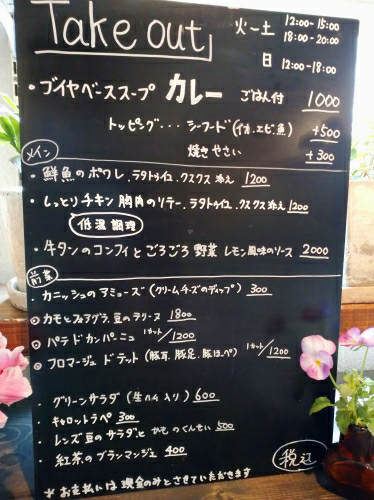 Take out
火〜土 12:00-15:00
18:00-20:00
日 12:00-18:00
・ブイヤベーススープ カレー ごはん付 1000
トッピング・・・シーフード(イカ、エビ、魚) +500
焼きやさい +300
メイン
・鮮魚のポワレ、ラタトゥイユ、クスクス添え 1200
・しっとりチキン胸肉のソテー、ラタトゥイユ、クスクス添え 1200
低温調理
・牛タンのコンフィとごろごろ野菜 レモン風味のソース 2000
前菜
・カニッシュのアミューズ(クリームチーズのディップ) 300
◎カモとフォアグラ、豆のテリーヌ 1800
◎パテドカンパーニュ 1カット/1200
◎フロマージュドテット(豚耳、豚足、豚ほっぺ) 1カット/1200
グリーンサラダ(生ハム入り) 600
・キャロットラペ 300
・レンズ豆のサラダと かものくんせい 500
・紅茶のブランマンジェ 400
税込
※お支払いは現金のみとさせていただきます